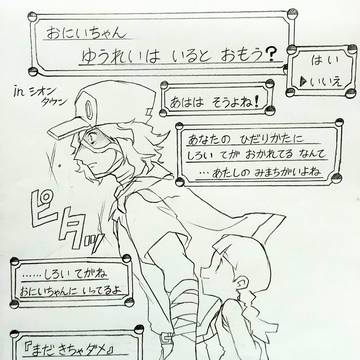 おにいちゃん
ゆうれいは いると おもう?
はい
▶いいえ
in シオン
タウン
あはは そうよね!
あなたの ひだりかたに
しろい てが おかれてる なんて
…あたしの みまちがいよね
ピタッ
……しろい てがね
おにいちゃんに いってるよ
『まだ きちゃダメ』